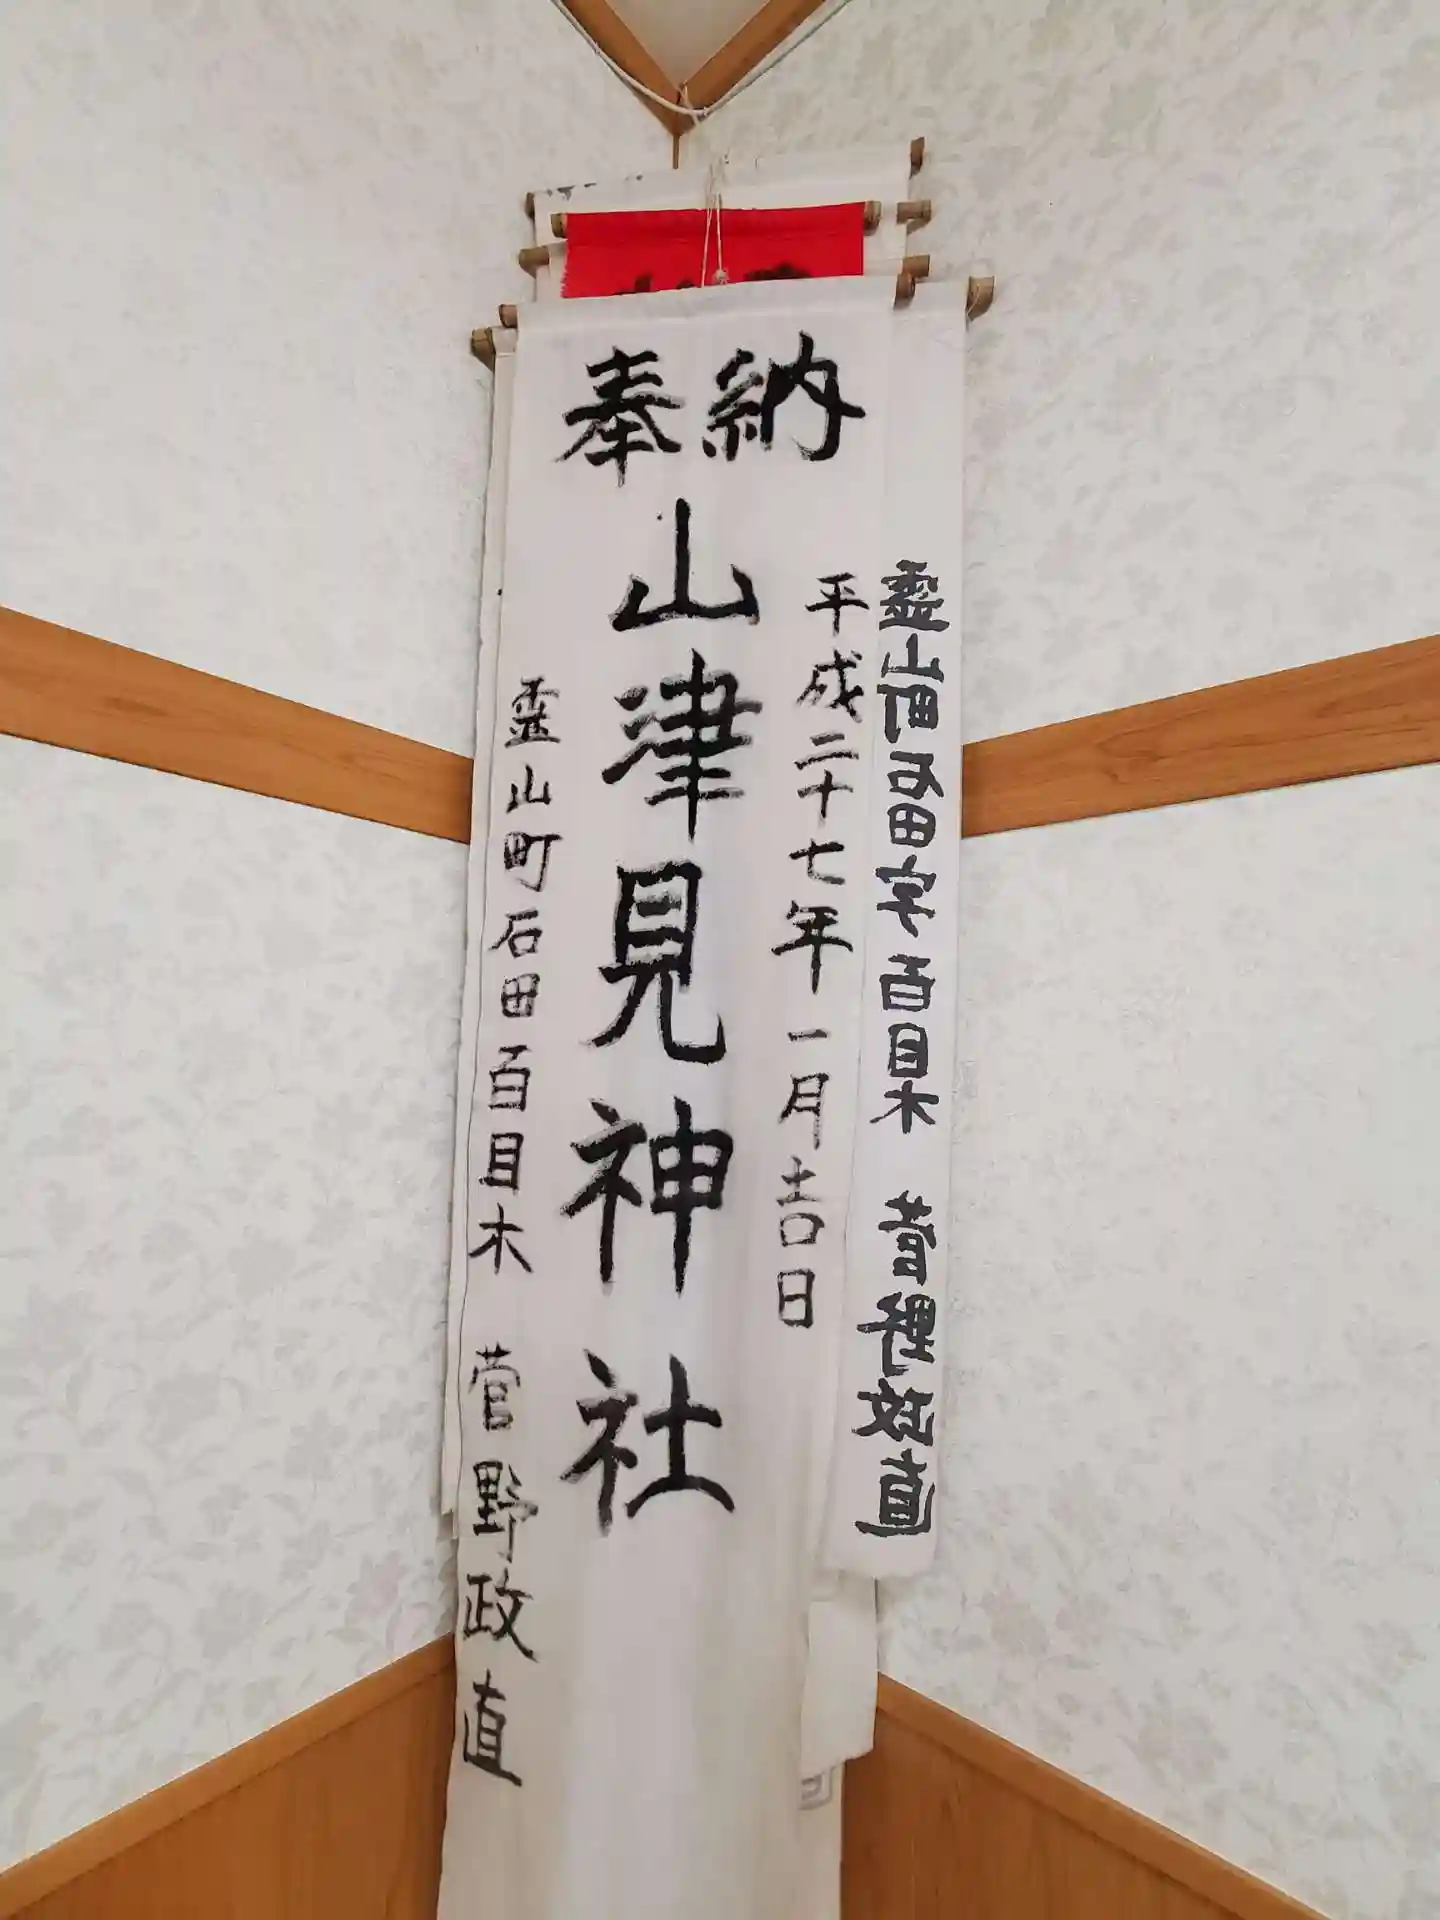 奉納
山津見神社
平成二十七年一月吉日
霊山町石田百目木 菅野政直
霊山町石田字百目木 菅野政直